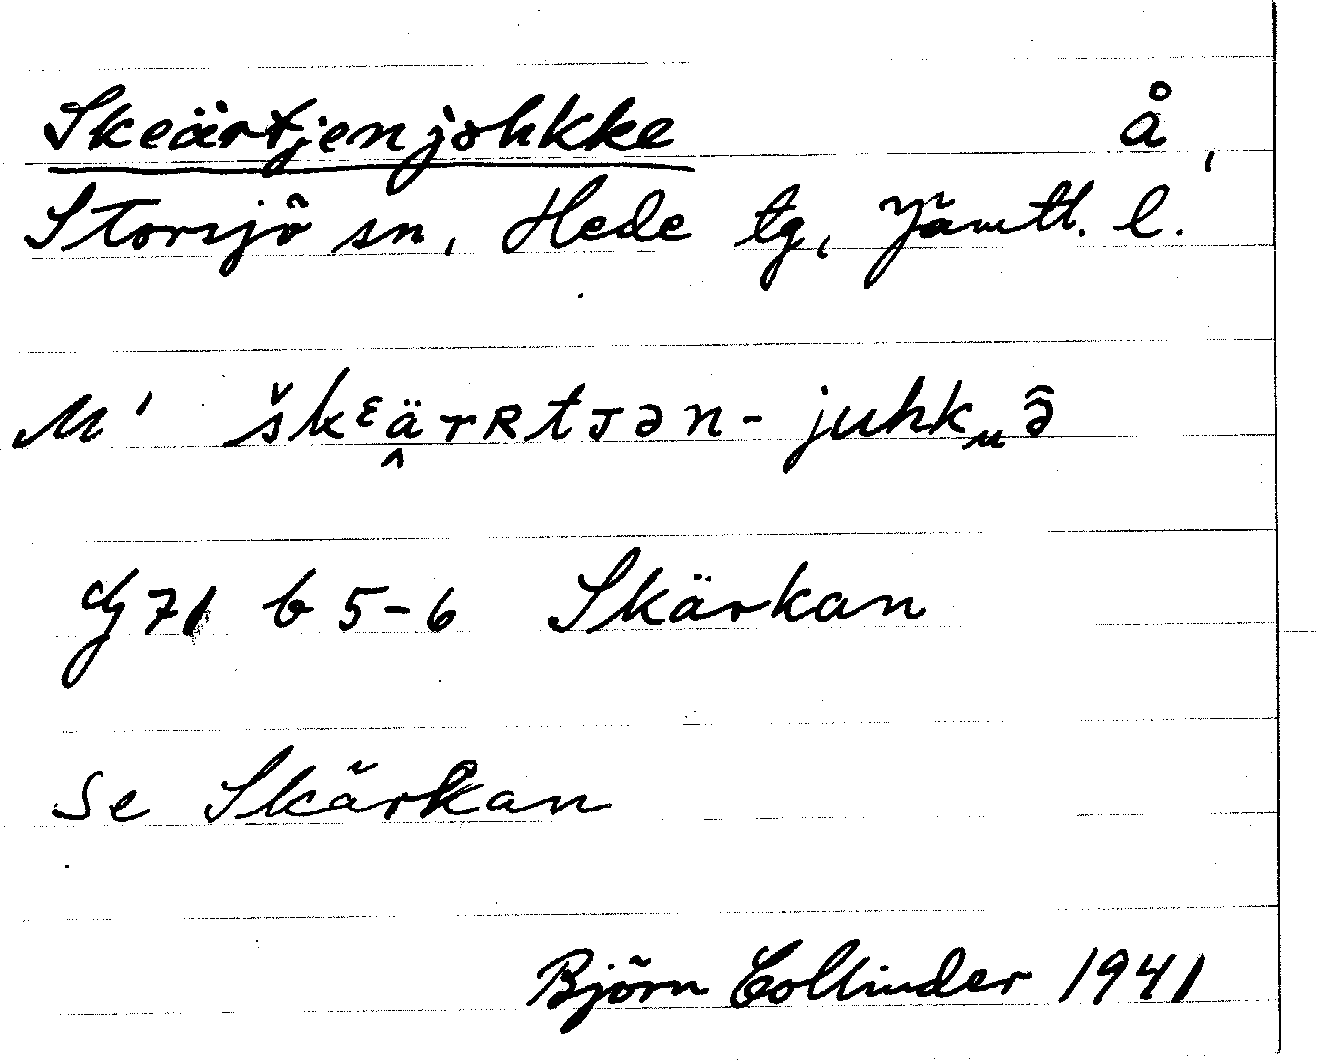 Skeärtjenjohkke å,
Storsjö sn, Hede tg, Jämtl. l.
M' škᵋä̭rRtJən-juhkᵤə̑
G 71 b 5-6 Skärkan
Se Skärkan
Björn Collinder 1941